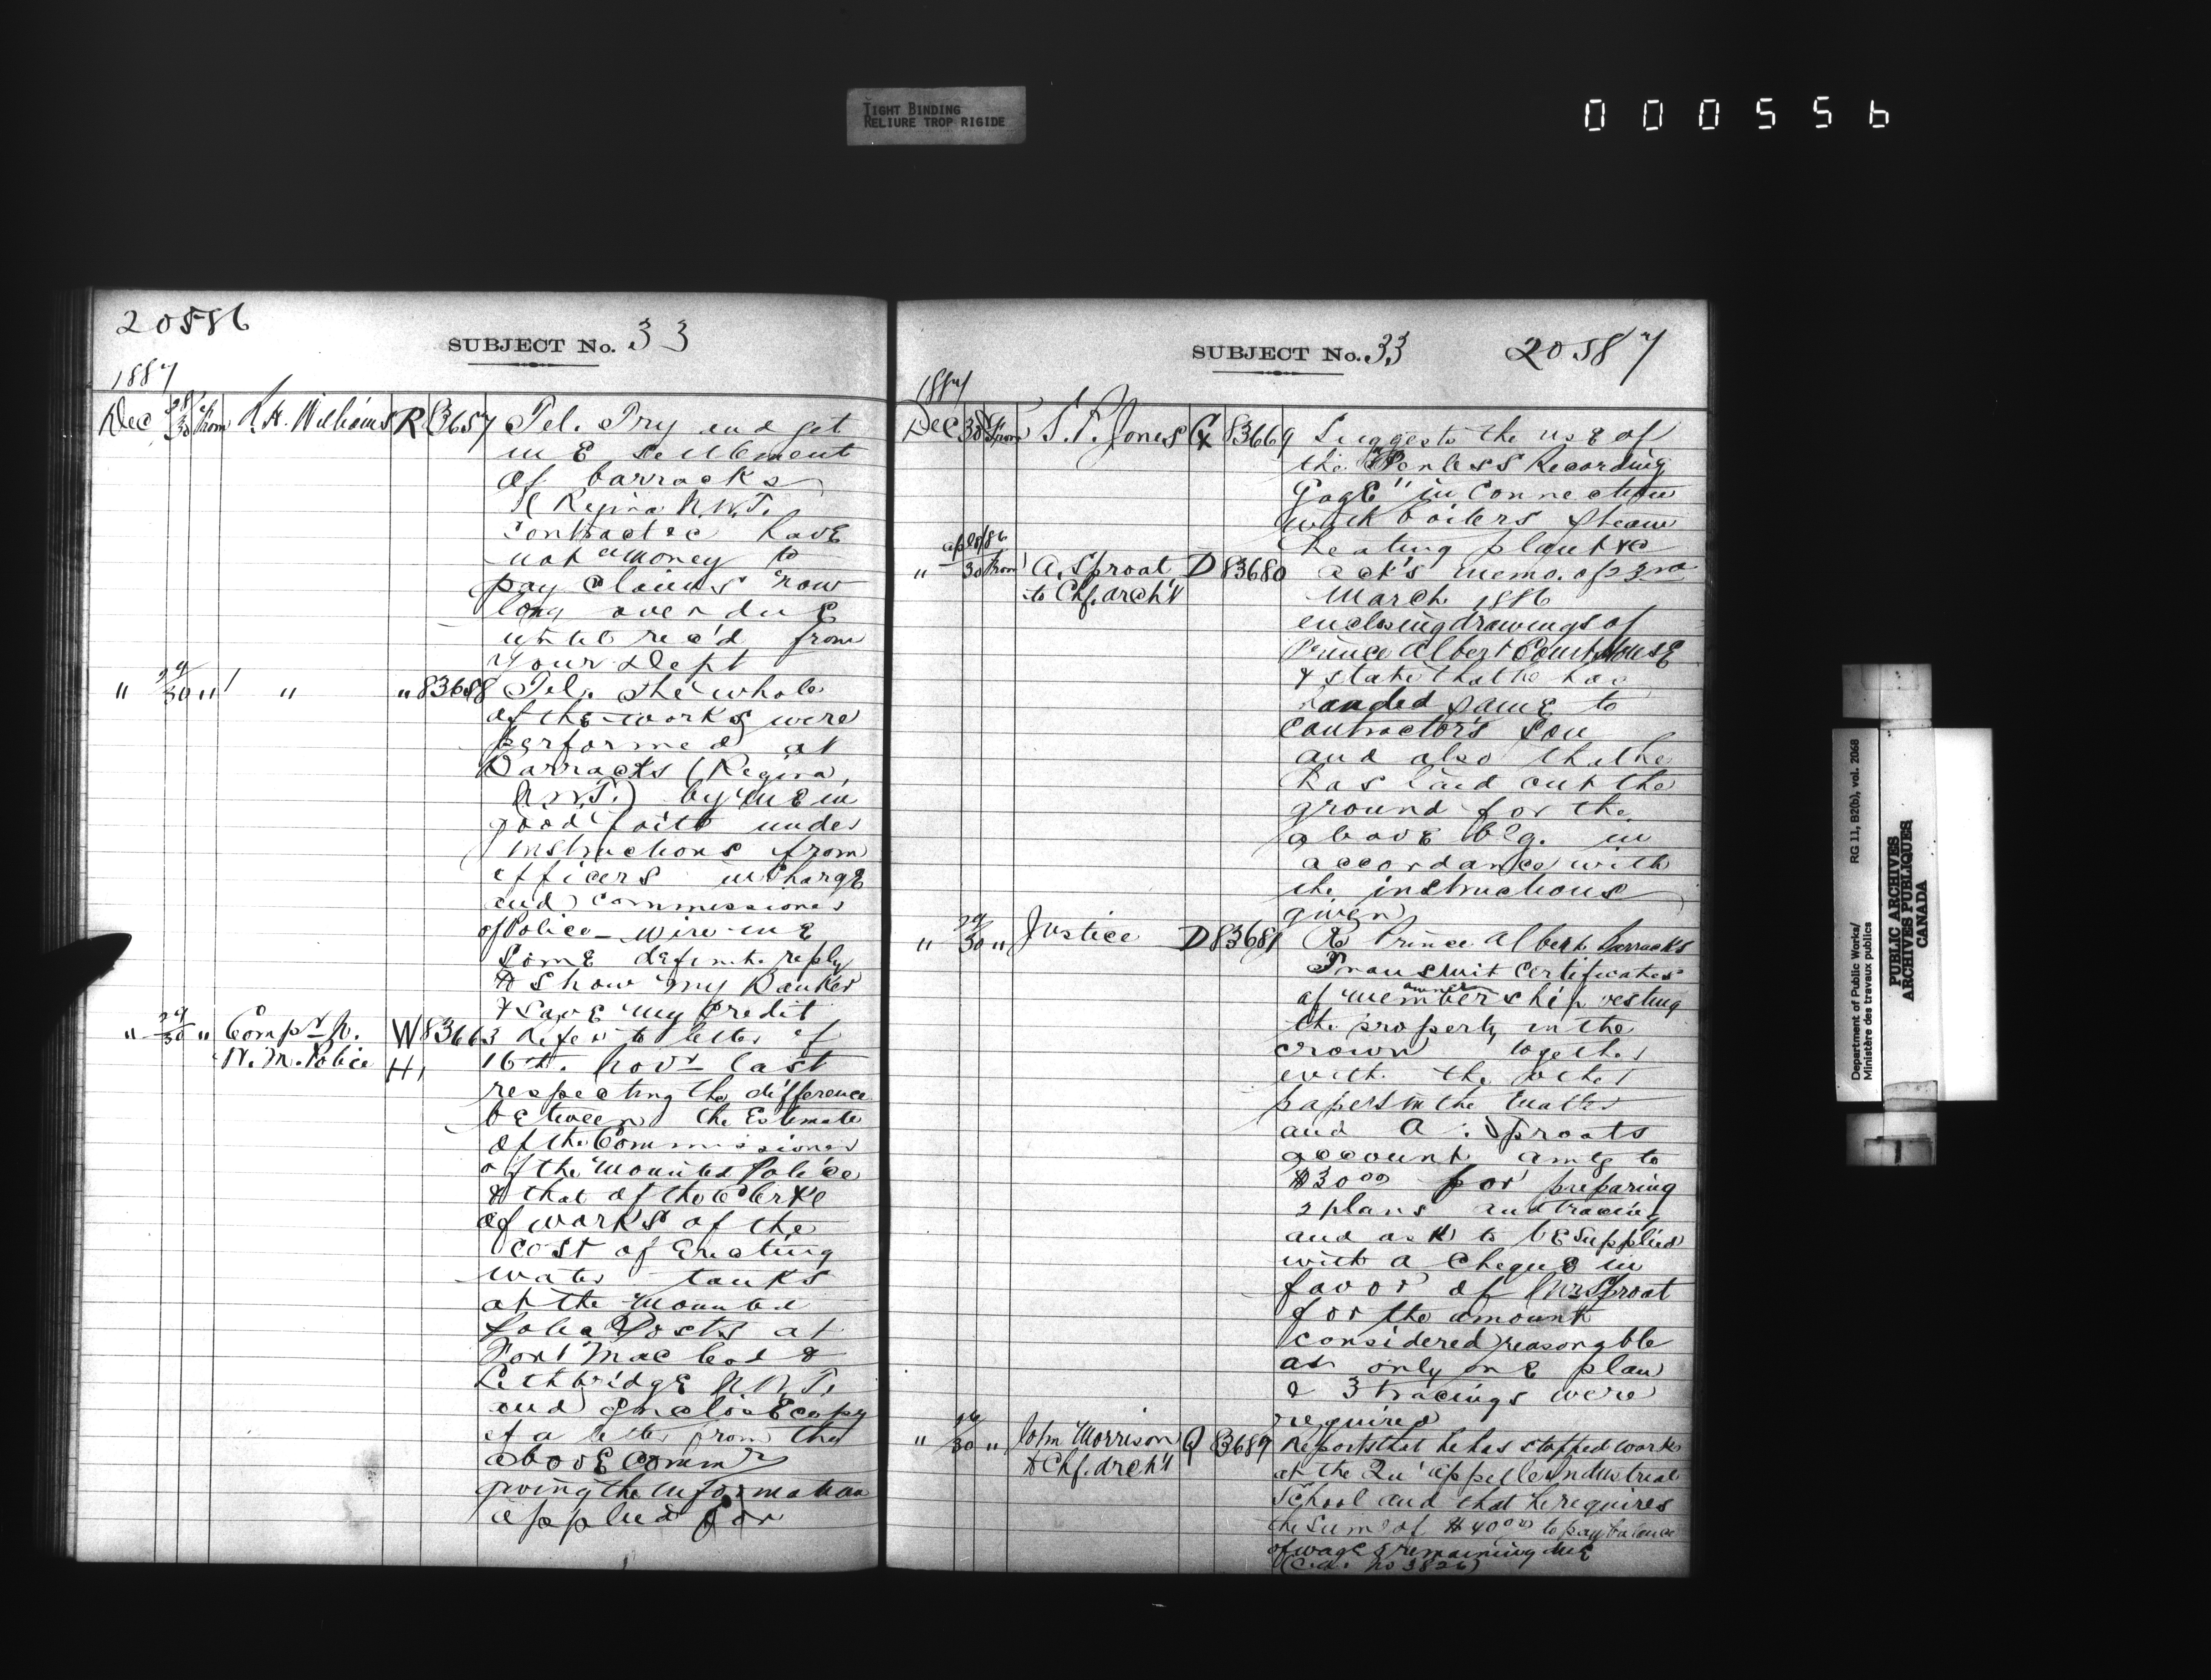 TIGHT BINDING
RELIURE TROP RIGIDE
000556
20586
SUBJECT No. 33
1887
Dec 28/30 From R. H. Williams R 83657 Tel. Try and get
me settlement
of barracks
Regina N.W.T.
have
not money to
pay claims now
long overdue
until rec'd from
your Dept
" 29/30 " " " 83658 Tel. The whole
of the works were
performed at
Barracks (Regina,
N.W.T.) by me in
good faith under
instructions from
officers in charge
and Commissioner
of Police - wire me
some definite reply
to show my Banker
& save my credit
" 29/30 " Compr N. W 83663 Refers to letter of
W. M. Police H, 16th Novr last
respecting the difference
between the Estimate
of the Commissioner
of the Mounted Police
& that of the Clerk
of works of the
cost of Erecting
water tanks
at the Mounted
Police Posts at
Fort Macleod &
Lethbridge N.W.T.
and Enclose copy
of a letter from the
above Commr
giving the information
applied for
SUBJECT No. 33 20587
1887
Dec 30 From S. F. Jones G 83669 Suggests the use of
the Penless Recording
Gage" in connection
with boilers steam
heating plant &c
" apl 8/86 30 From A. Sproat D 83680 ack's memo. of 23rd
to Chf. arch't March 1886
enclosing drawings of
Prince Albert Court House
& state that he has
handed same to
contractor's son
and also that he
has laid out the
ground for the
above blg. in
accordance with
the instructions
given
" 29/30 " Justice D 83681 Re Prince Albert Barracks
Transmit certificates
of membership vesting
owner
the property in the
crown together
with the other
papers in the matter
and A. Sproats
account amtg to
$30 00 for preparing
2 plans and tracing
and ask to be supplied
with a cheque in
favor of Mr Sproat
for the amount
considered reasonable
as only one plan
& 3 tracings were
required
" 26/30 " John Morrison Q 83689 Reports that he has stopped work
to Chf. arch't at the Qu'appelle Industrial
School and that he requires
the sum of $40 00 to pay balance
of wages remaining due
(C.d. No 3826)
Department of Public Works/ RG 11, B2(b), vol. 2068
Ministère des travaux publics
PUBLIC ARCHIVES
ARCHIVES PUBLIQUES
CANADA